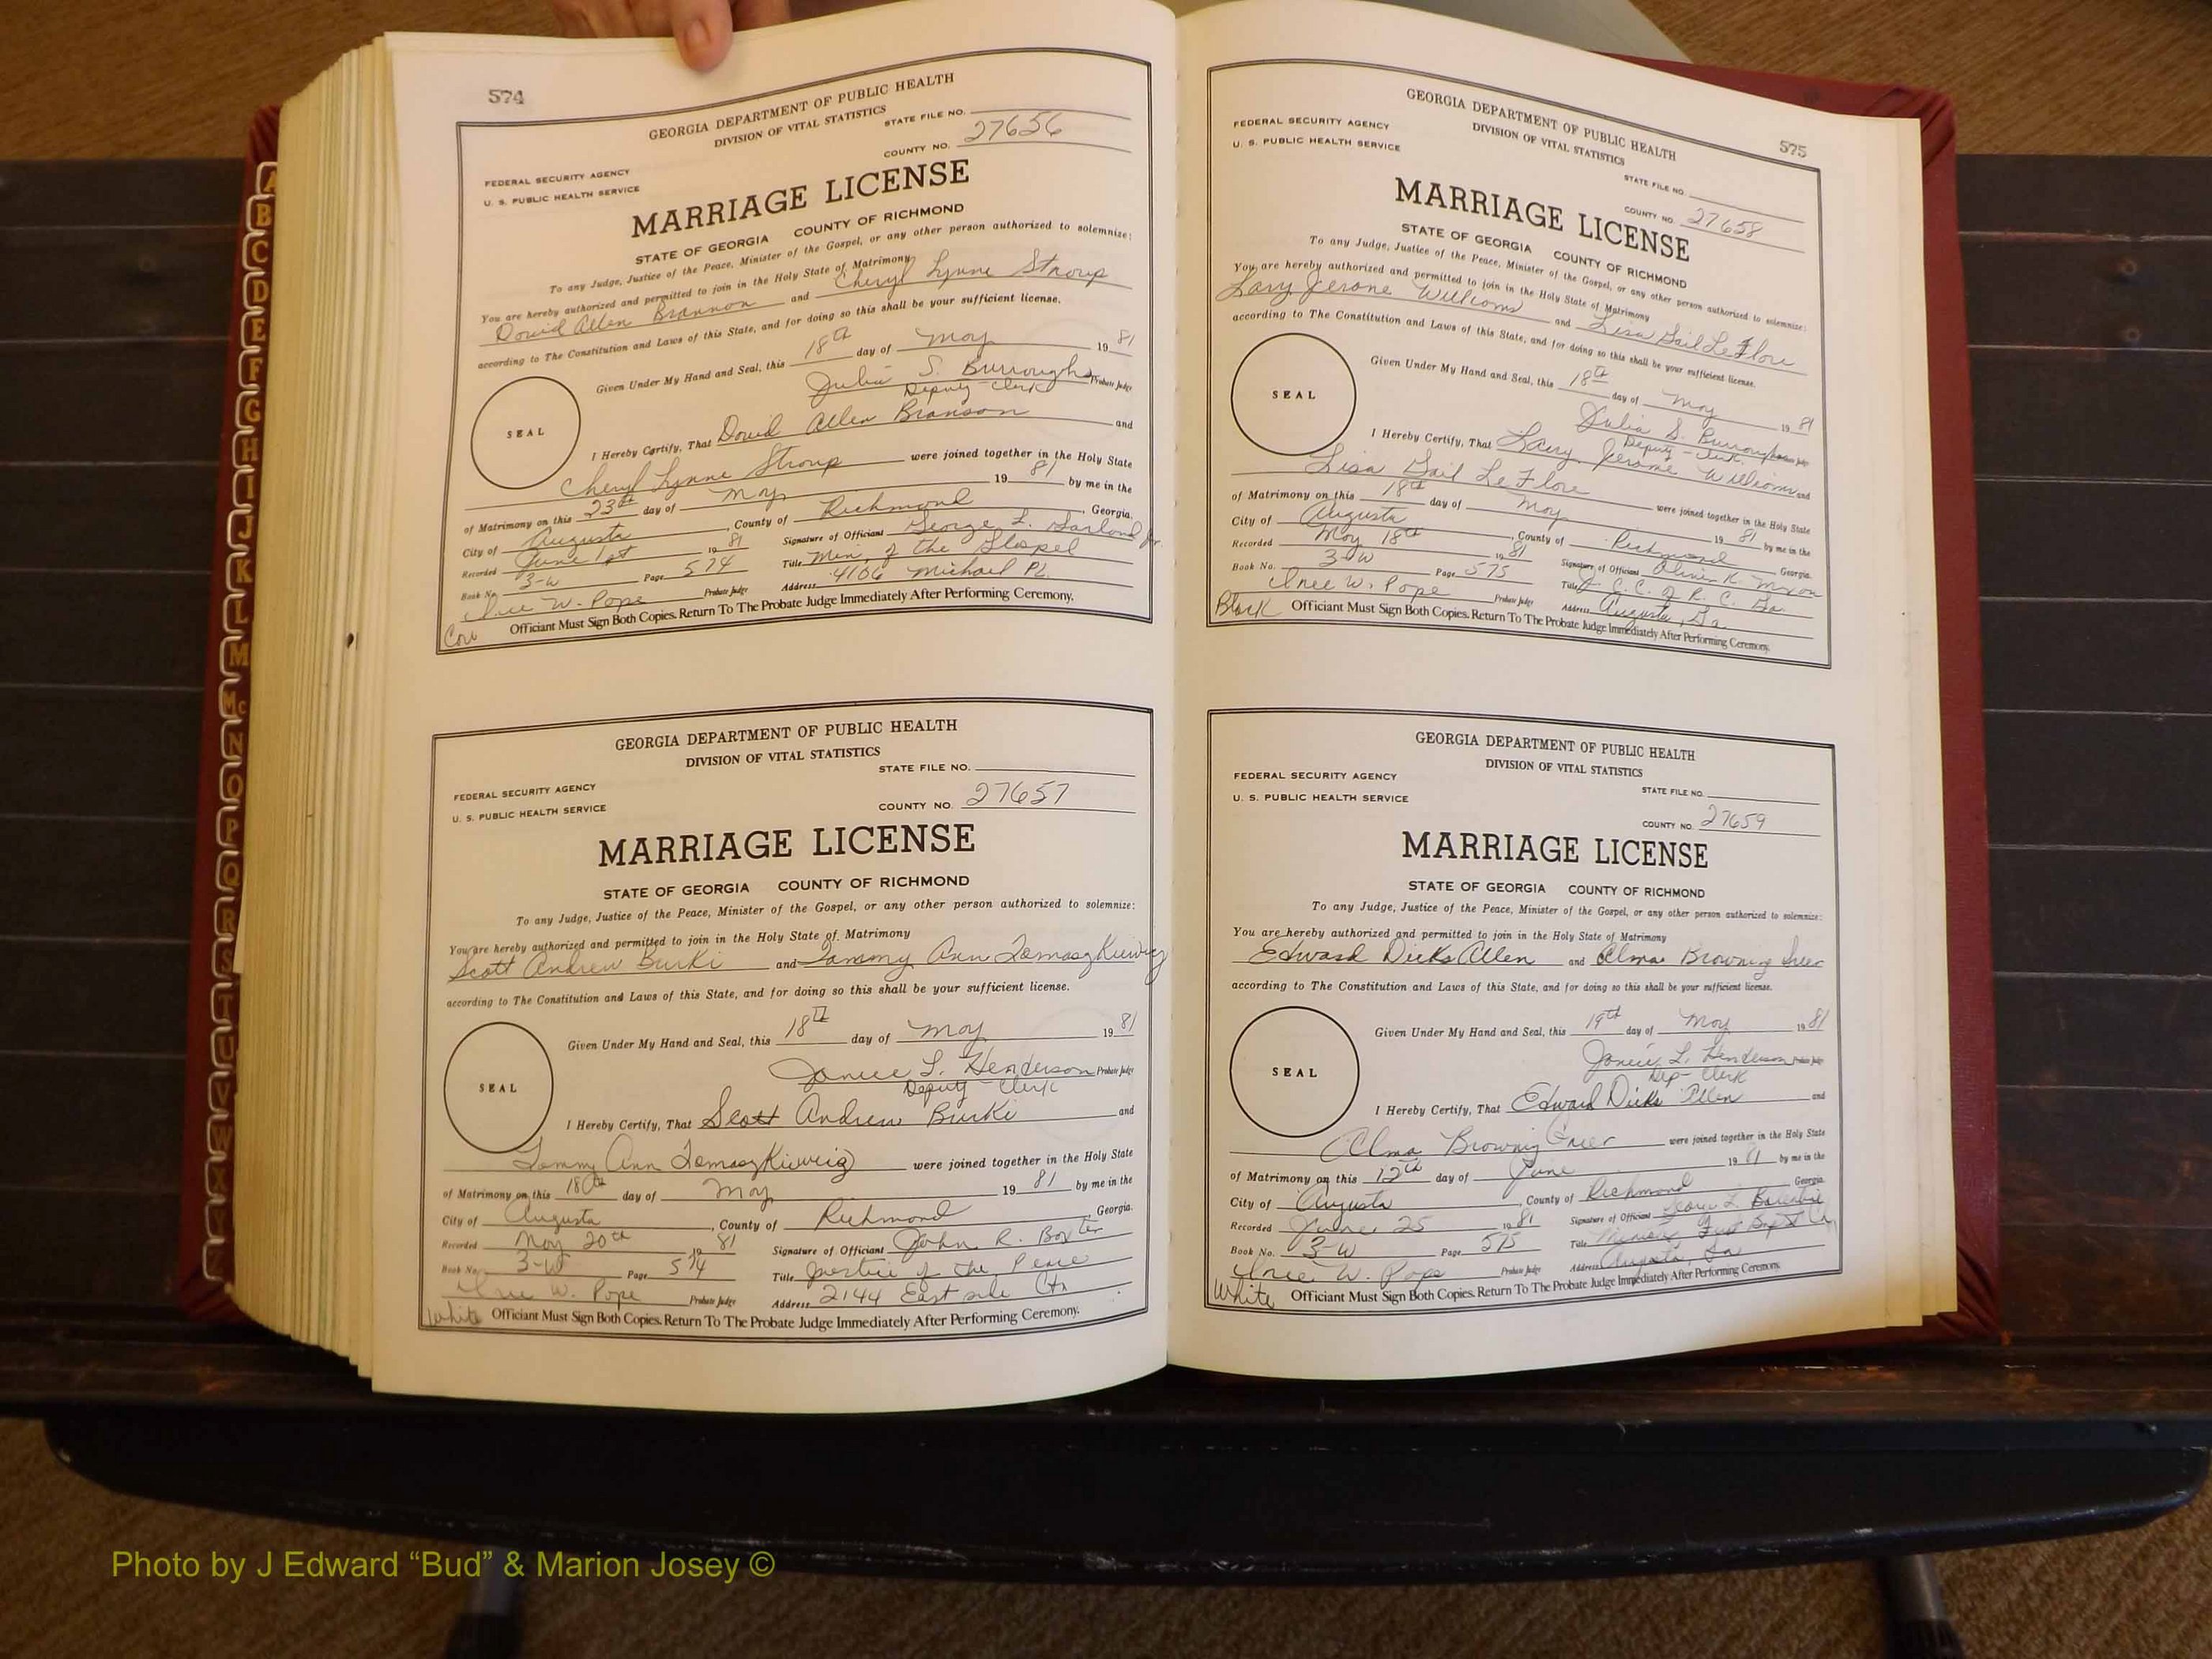 574
GEORGIA DEPARTMENT OF PUBLIC HEALTH
DIVISION OF VITAL STATISTICS
STATE FILE NO.
COUNTY NO. 27656
FEDERAL SECURITY AGENCY
U. S. PUBLIC HEALTH SERVICE
MARRIAGE LICENSE
STATE OF GEORGIA COUNTY OF RICHMOND
To any Judge, Justice of the Peace, Minister of the Gospel, or any other person authorized to solemnize:
You are hereby authorized and permitted to join in the Holy State of Matrimony
David Allen Brannon and Cheryl Lynne Stroup
according to The Constitution and Laws of this State, and for doing so this shall be your sufficient license.
Given Under My Hand and Seal, this 18th day of May 1981
Julia S. Burroughs Probate Judge
Deputy Clerk
SEAL
I Hereby Certify, That David Allen Branson and
Cheryl Lynne Stroup were joined together in the Holy State
of Matrimony on this 23rd day of May 1981 by me in the
City of Augusta, County of Richmond Georgia.
Recorded June 1st 1981 Signature of Official George L. Garland Jr.
Book No. 3-W Page 574 Title Min. of the Gospel
Inee W. Pope Probate Judge Address 4106 Michael Pl.
Officiant Must Sign Both Copies. Return To The Probate Judge Immediately After Performing Ceremony.
GEORGIA DEPARTMENT OF PUBLIC HEALTH
DIVISION OF VITAL STATISTICS
STATE FILE NO.
COUNTY NO. 27657
FEDERAL SECURITY AGENCY
U. S. PUBLIC HEALTH SERVICE
MARRIAGE LICENSE
STATE OF GEORGIA COUNTY OF RICHMOND
To any Judge, Justice of the Peace, Minister of the Gospel, or any other person authorized to solemnize:
You are hereby authorized and permitted to join in the Holy State of Matrimony
Scott Andrew Burki and Tammy Ann
according to The Constitution and Laws of this State, and for doing so this shall be your sufficient license.
Given Under My Hand and Seal, this 18th day of May 1981
Janice L. Henderson Probate Judge
Deputy Clerk
SEAL
I Hereby Certify, That Scott Andrew Burki and
Tammy Ann were joined together in the Holy State
of Matrimony on this 18th day of May 1981 by me in the
City of Augusta, County of Richmond Georgia.
Recorded May 20th 1981 Signature of Official John R. Baxter
Book No. 3-W Page 574 Title Justice of the Peace
Inee W. Pope Probate Judge Address 2144 East side Ctr
White Officiant Must Sign Both Copies. Return To The Probate Judge Immediately After Performing Ceremony.
575
GEORGIA DEPARTMENT OF PUBLIC HEALTH
DIVISION OF VITAL STATISTICS
FEDERAL SECURITY AGENCY
U. S. PUBLIC HEALTH SERVICE
STATE FILE NO.
COUNTY NO. 27658
MARRIAGE LICENSE
STATE OF GEORGIA COUNTY OF RICHMOND
To any Judge, Justice of the Peace, Minister of the Gospel, or any other person authorized to solemnize:
You are hereby authorized and permitted to join in the Holy State of Matrimony
Lary Jerome Williams and Lisa Gail LeFlore
according to The Constitution and Laws of this State, and for doing so this shall be your sufficient license.
Given Under My Hand and Seal, this 18th day of May 1981
Julia S. Burroughs
Deputy - Clerk
SEAL
I Hereby Certify, That Lary Jerome Williams and
Lisa Gail LeFlore were joined together in the Holy State
of Matrimony on this 18th day of May 1981 by me in the
City of Augusta, County of Richmond Georgia.
Recorded May 18th 1981 Signature of Official Oliver K. Mixon
Book No. 3-W Page 575 Title J. C. C. of R. C. Ga.
Inee W. Pope Probate Judge Address Augusta, Ga.
Black Officiant Must Sign Both Copies. Return To The Probate Judge Immediately After Performing Ceremony.
GEORGIA DEPARTMENT OF PUBLIC HEALTH
DIVISION OF VITAL STATISTICS
FEDERAL SECURITY AGENCY
U. S. PUBLIC HEALTH SERVICE
STATE FILE NO.
COUNTY NO. 27659
MARRIAGE LICENSE
STATE OF GEORGIA COUNTY OF RICHMOND
To any Judge, Justice of the Peace, Minister of the Gospel, or any other person authorized to solemnize:
You are hereby authorized and permitted to join in the Holy State of Matrimony
Edward Dicks Allen and Alma Browning Greer
according to The Constitution and Laws of this State, and for doing so this shall be your sufficient license.
Given Under My Hand and Seal, this 19th day of May 1981
Janice L. Henderson Probate Judge
Dep - Clerk
SEAL
I Hereby Certify, That Edward Dicks Allen and
Alma Browning Greer were joined together in the Holy State
of Matrimony on this 12th day of June 1981 by me in the
City of Augusta, County of Richmond Georgia.
Recorded June 25 1981 Signature of Official
Book No. 3-W Page 575 Title First Bapt Ch
Inee W. Pope Probate Judge Address Augusta, Ga
White Officiant Must Sign Both Copies. Return To The Probate Judge Immediately After Performing Ceremony.
A
B
C
D
E
F
G
H
I
J
K
L
M
Mc
N
O
P
Q
R
S
T
U
V
W
X
Y
Z
Photo by J Edward “Bud” & Marion Josey ©